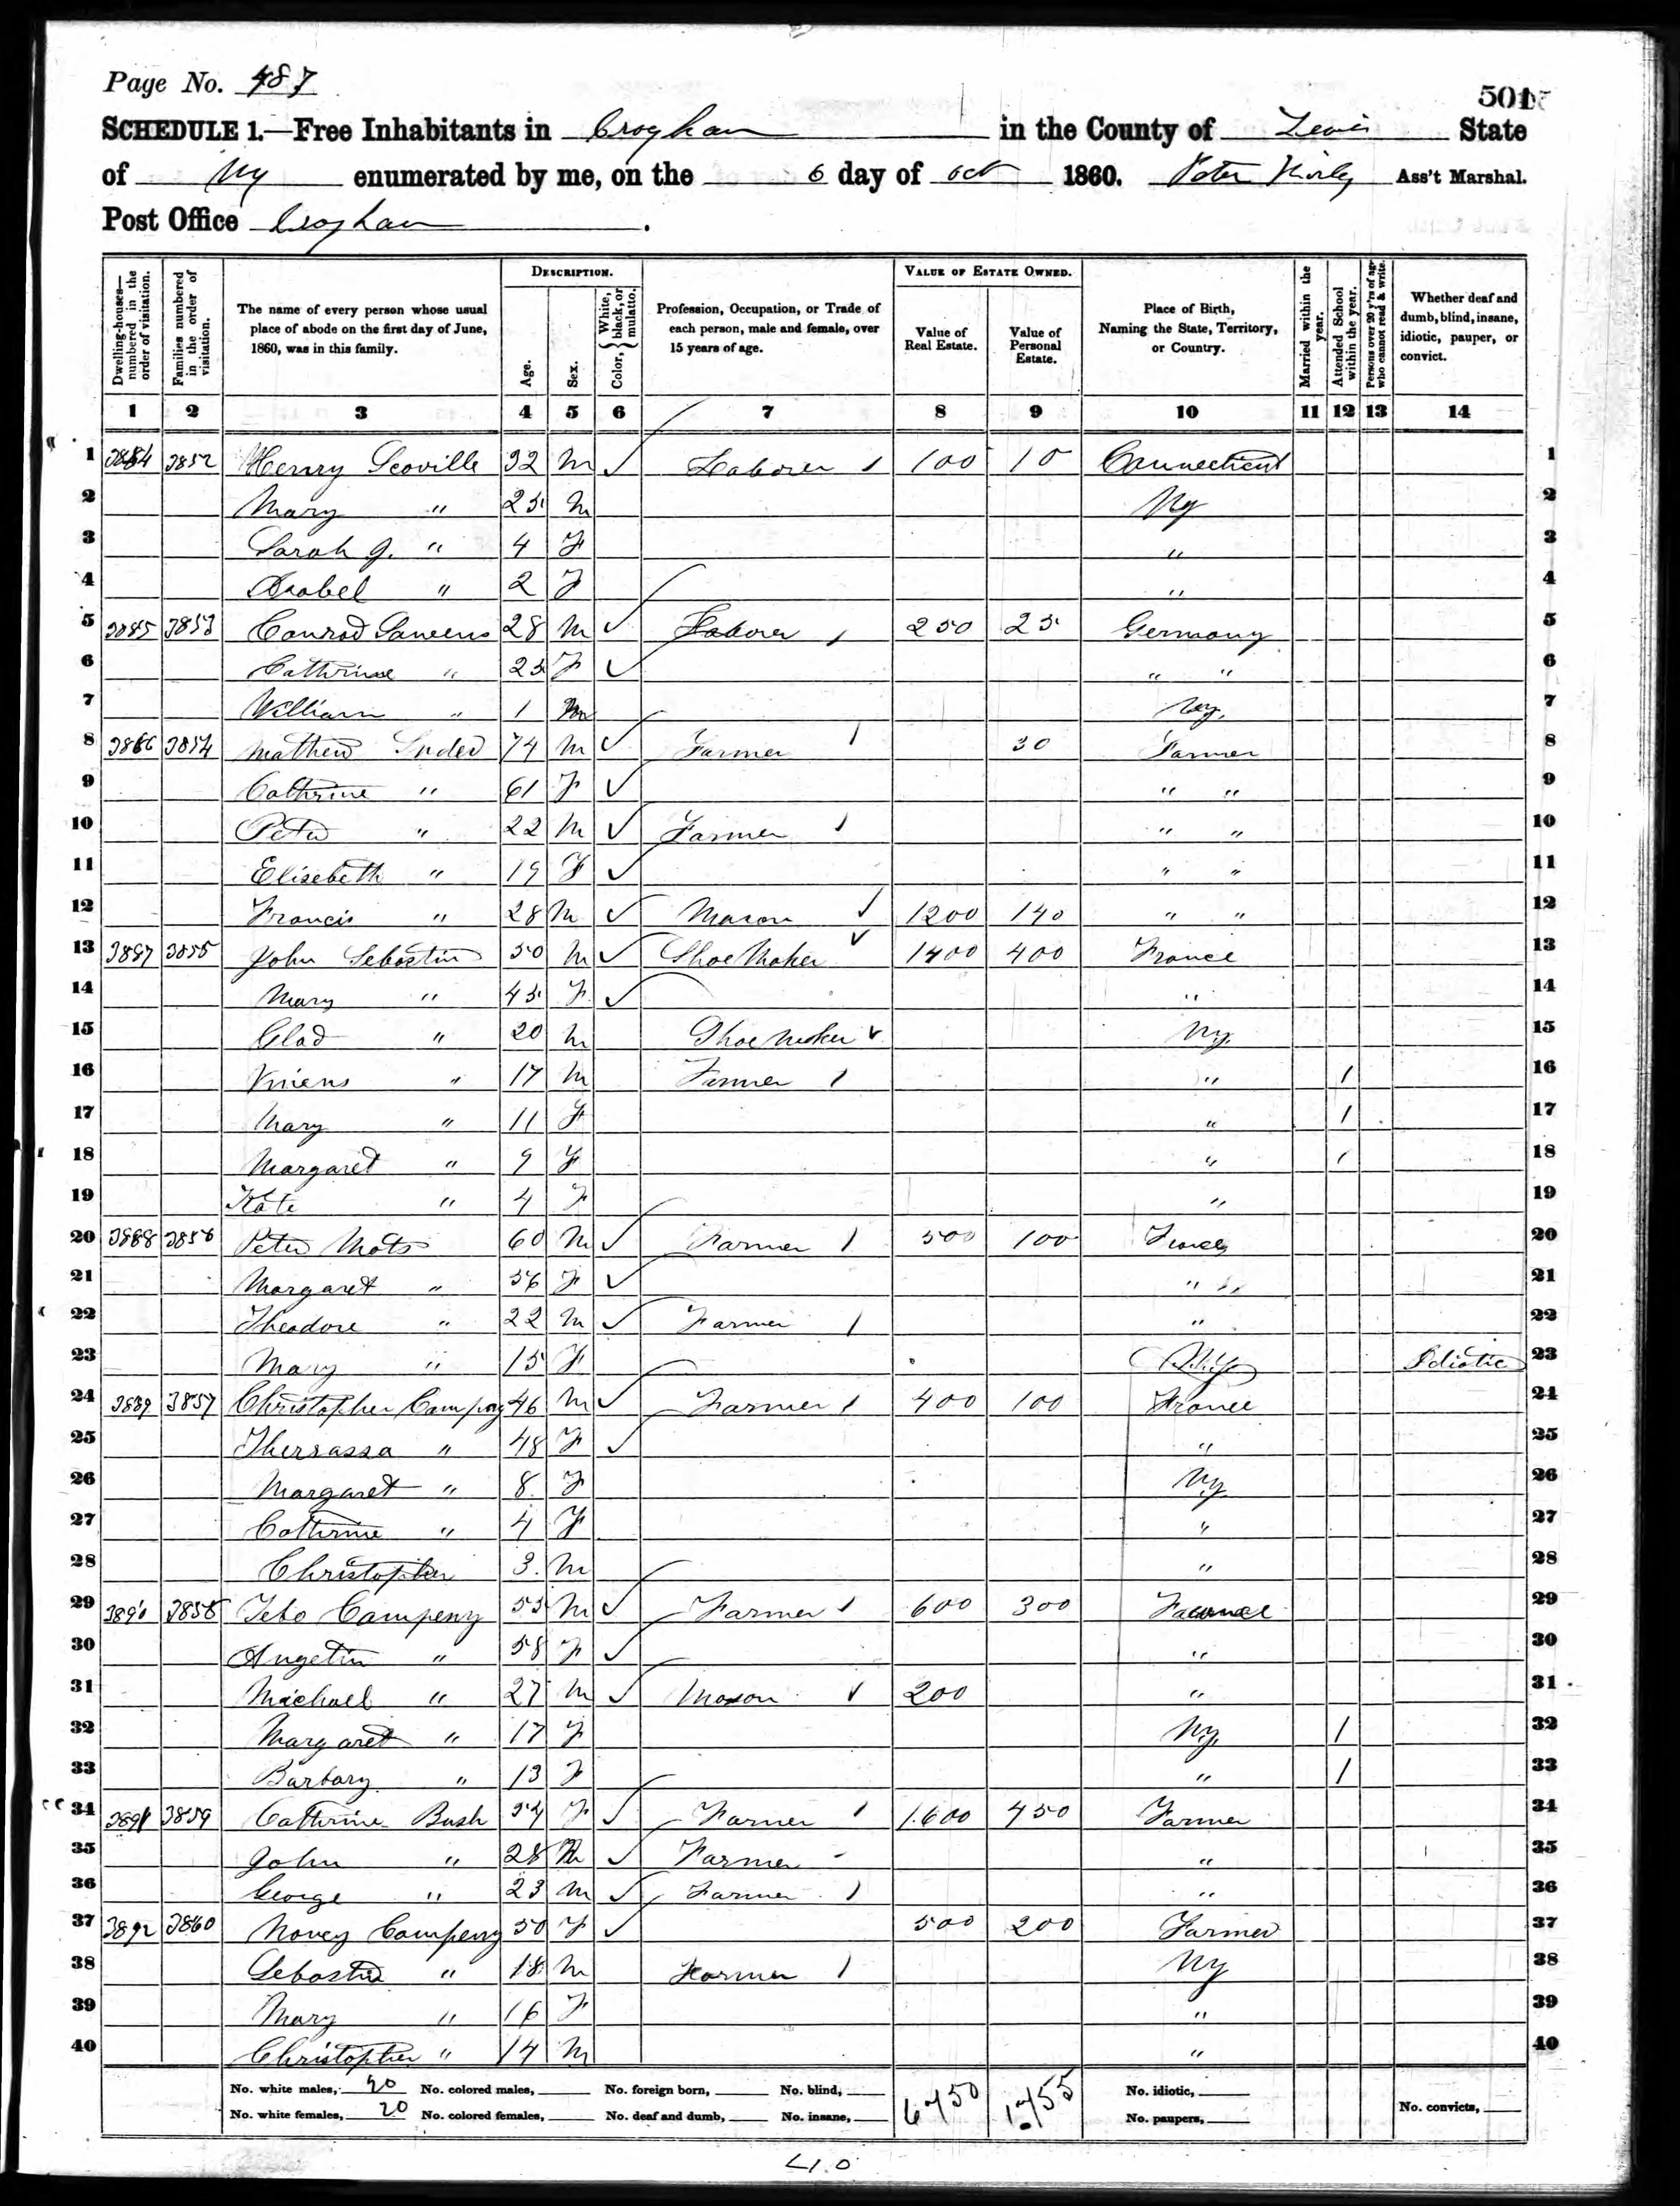 Page No. 487
501
SCHEDULE 1.—Free Inhabitants in Croghan in the County of Lewis State
of Ny enumerated by me, on the 6 day of Oct 1860. Peter Kirley Ass't Marshal.
Post Office Croghan.
Dwelling-houses—numbered in the order of visitation.
Families numbered in the order of visitation.
The name of every person whose usual place of abode on the first day of June, 1860, was in this family.
DESCRIPTION.
Age.
Sex.
Color, { White, black, or mulatto.
Profession, Occupation, or Trade of each person, male and female, over 15 years of age.
VALUE OF ESTATE OWNED.
Value of Real Estate.
Value of Personal Estate.
Place of Birth, Naming the State, Territory, or Country.
Married within the year.
Attended School within the year.
Persons over 20 y'rs of age who cannot read & write.
Whether deaf and dumb, blind, insane, idiotic, pauper, or convict.
1 2 3 4 5 6 7 8 9 10 11 12 13 14
1 3884 3852 Henry Scoville 32 M ✓ Laborer / 100 10 Connecticut 1
2 Mary " 25 M Ny 2
3 Sarah J. " 4 F " 3
4 Isabel " 2 F " 4
5 3885 3853 Conrad 28 M ✓ Laborer / 250 25 Germany 5
6 Cathrine " 25 F ✓ " " 6
7 William " 1 M Ny. 7
8 3886 3854 Mathew 74 M ✓ Farmer / 30 Farmer 8
9 Cathrine " 61 F ✓ " " 9
10 Peter " 22 M ✓ Farmer / " " 10
11 Elisebeth " 19 F ✓ " " 11
12 Francis " 28 M ✓ Mason ✓ 1200 140 " " 12
13 3887 3855 John Sebastin 50 M ✓ Shoe Maker ✓ 1400 400 France 13
14 Mary " 45 F ✓ " 14
15 Glad " 20 M Shoe Maker ✓ Ny. 15
16 " 17 M Farmer / " / 16
17 Mary " 11 F " / 17
18 Margaret " 9 F " / 18
19 Kate " 4 F " 19
20 3888 3856 Peter Mots 60 M ✓ Farmer / 500 100 France 20
21 Margaret " 56 F ✓ " " 21
22 Theodore " 22 M ✓ Farmer / " 22
23 Mary " 15 F N.Y. Idiotic 23
24 3889 3857 Christopher Campeny 46 M ✓ Farmer / 400 100 France 24
25 Therassa " 48 F ✓ " 25
26 Margaret " 8 F Ny 26
27 Cathrine " 4 F " 27
28 Christopher 3 M " 28
29 3890 3858 Tebo Campeny 55 M ✓ Farmer / 600 300 France 29
30 Angetin " 58 F ✓ " 30
31 Michael " 27 M ✓ Mason ✓ 200 " 31
32 Margaret " 17 F Ny. / 32
33 Barbary " 13 F " / 33
34 3891 3859 Cathrine Bush 54 F ✓ Farmer / 1.600 450 Farmer 34
35 John " 28 M ✓ Farmer - " 35
36 George " 23 M ✓ Farmer / " 36
37 3892 3860 Novey Campeny 50 F ✓ 500 200 Farmer 37
38 Sebastin " 18 M Farmer / Ny 38
39 Mary " 16 F " 39
40 Christopher " 14 M " 40
No. white males, 20 No. colored males, No. foreign born, No. blind, 6750 1755 No. idiotic,
No. white females, 20 No. colored females, No. deaf and dumb, No. insane, No. paupers, No. convicts,